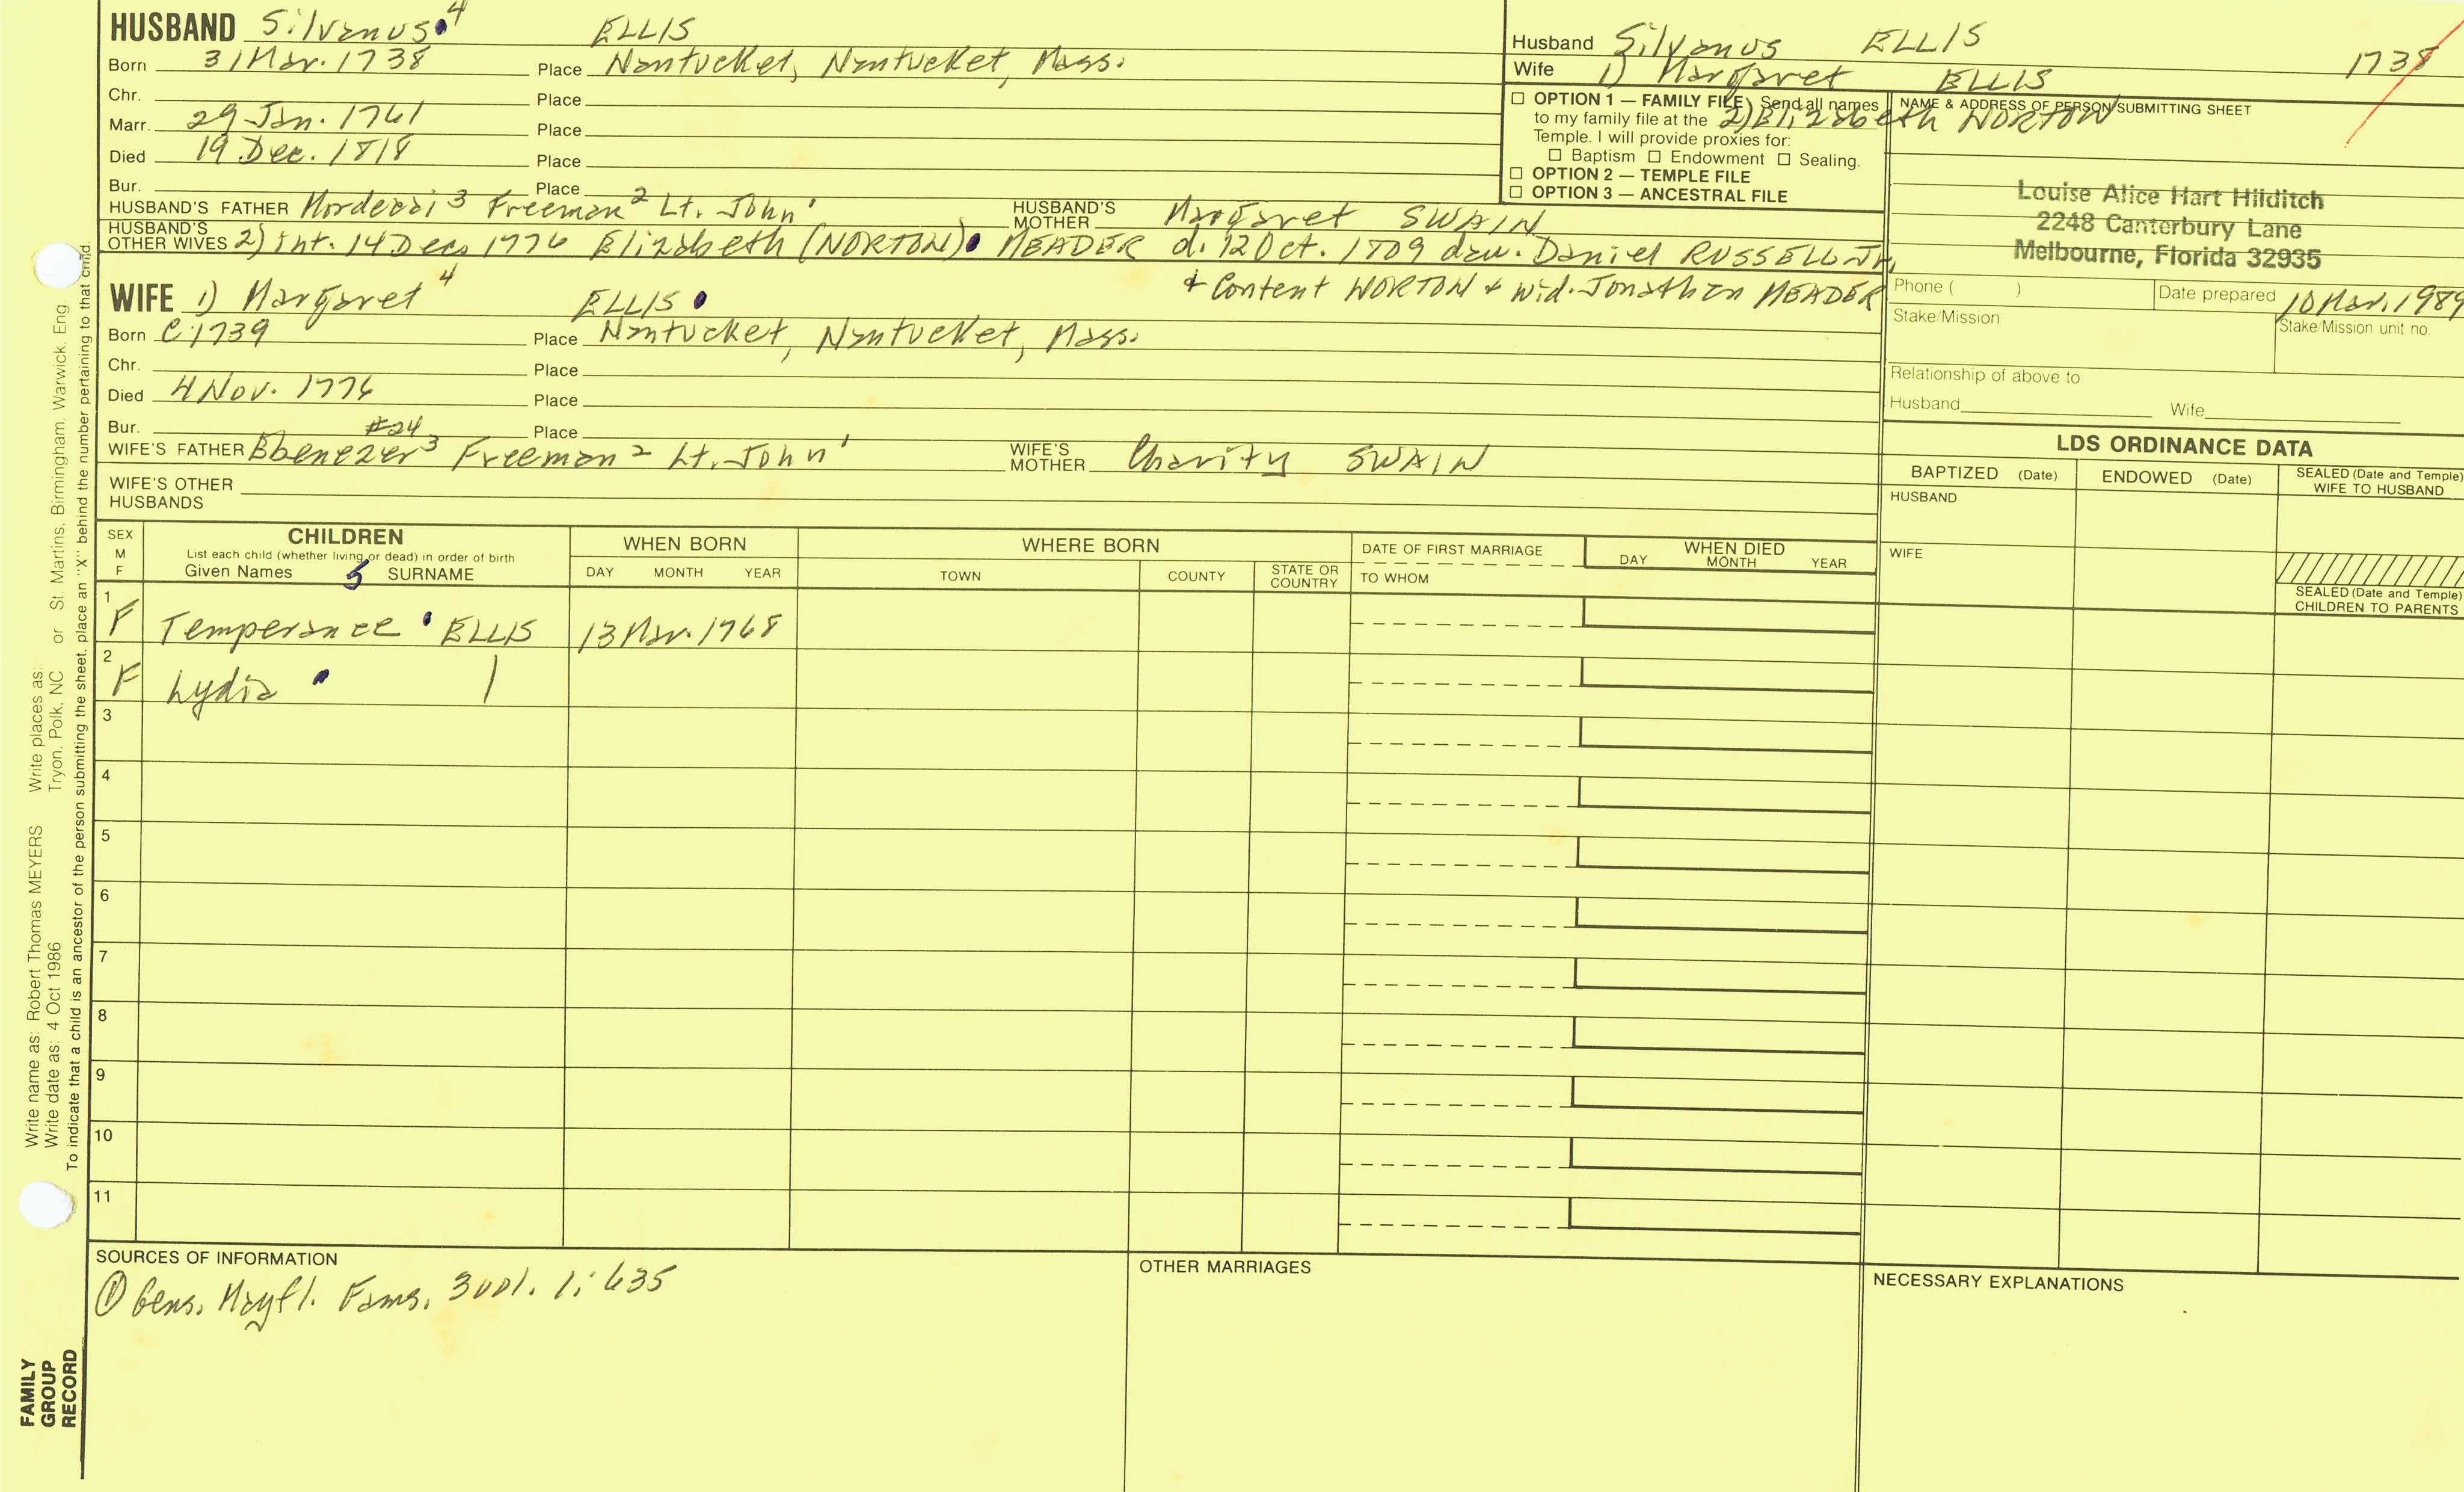 HUSBAND Silvanus 4 ELLIS
Born 31 Mar. 1738 Place Nantucket, Nantucket, Mass.
Chr. Place
Marr. 29 Jan. 1761 Place
Died 19 Dec. 1818 Place
Bur. Place
HUSBAND'S FATHER Mordecai 3 Freeman 2 Lt. John 1 HUSBAND'S MOTHER Margaret SWAIN
HUSBAND'S OTHER WIVES 2) int. 14 Dec. 1776 Elizabeth (NORTON) MEADER d. 12 Oct. 1809 dau. Daniel RUSSELL Jr.
+ Content NORTON + wid. Jonathan MEADER
WIFE 1) Margaret 4 ELLIS
Born C. 1739 Place Nantucket, Nantucket, Mass.
Chr. Place
Died 4 Nov. 1776 Place
Bur. Place
#24
WIFE'S FATHER Ebenezer 3 Freeman 2 Lt. John 1 WIFE'S MOTHER Charity SWAIN
WIFE'S OTHER HUSBANDS
Husband Silvanus ELLIS 1738
Wife 1) Margaret ELLIS
2) Elizabeth NORTON
☐ OPTION 1 — FAMILY FILE) Send all names
to my family file at the
Temple. I will provide proxies for:
☐ Baptism ☐ Endowment ☐ Sealing.
☐ OPTION 2 — TEMPLE FILE
☐ OPTION 3 — ANCESTRAL FILE
NAME & ADDRESS OF PERSON SUBMITTING SHEET
Louise Alice Hart Hilditch
2248 Canterbury Lane
Melbourne, Florida 32935
Phone ( ) Date prepared 10 Mar. 1989
Stake/Mission Stake/Mission unit no.
Relationship of above to
Husband Wife
LDS ORDINANCE DATA
BAPTIZED (Date) ENDOWED (Date) SEALED (Date and Temple) WIFE TO HUSBAND
HUSBAND
WIFE
SEALED (Date and Temple) CHILDREN TO PARENTS
SEX M F
CHILDREN
List each child (whether living or dead) in order of birth
Given Names 5 SURNAME
WHEN BORN
DAY MONTH YEAR
WHERE BORN
TOWN COUNTY STATE OR COUNTRY
DATE OF FIRST MARRIAGE
TO WHOM
WHEN DIED
DAY MONTH YEAR
1 F Temperance ELLIS 13 Mar. 1768
2 F Lydia |
3
4
5
6
7
8
9
10
11
SOURCES OF INFORMATION
① Gens. Mayfl. Fams. 3 vol. 1: 635
OTHER MARRIAGES
NECESSARY EXPLANATIONS
Write name as: Robert Thomas MEYERS Write places as:
Write date as: 4 Oct 1986 Tryon, Polk, NC or St. Martins, Birmingham, Warwick, Eng
To indicate that a child is an ancestor of the person submitting the sheet, place an "X" behind the number pertaining to that child.
FAMILY
GROUP
RECORD